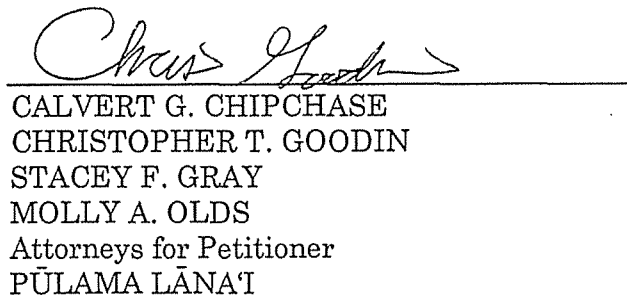 Chris Goodin
CALVERT G. CHIPCHASE
CHRISTOPHER T. GOODIN
STACEY F. GRAY
MOLLY A. OLDS
Attorneys for Petitioner
PŪLAMA LĀNA‘I